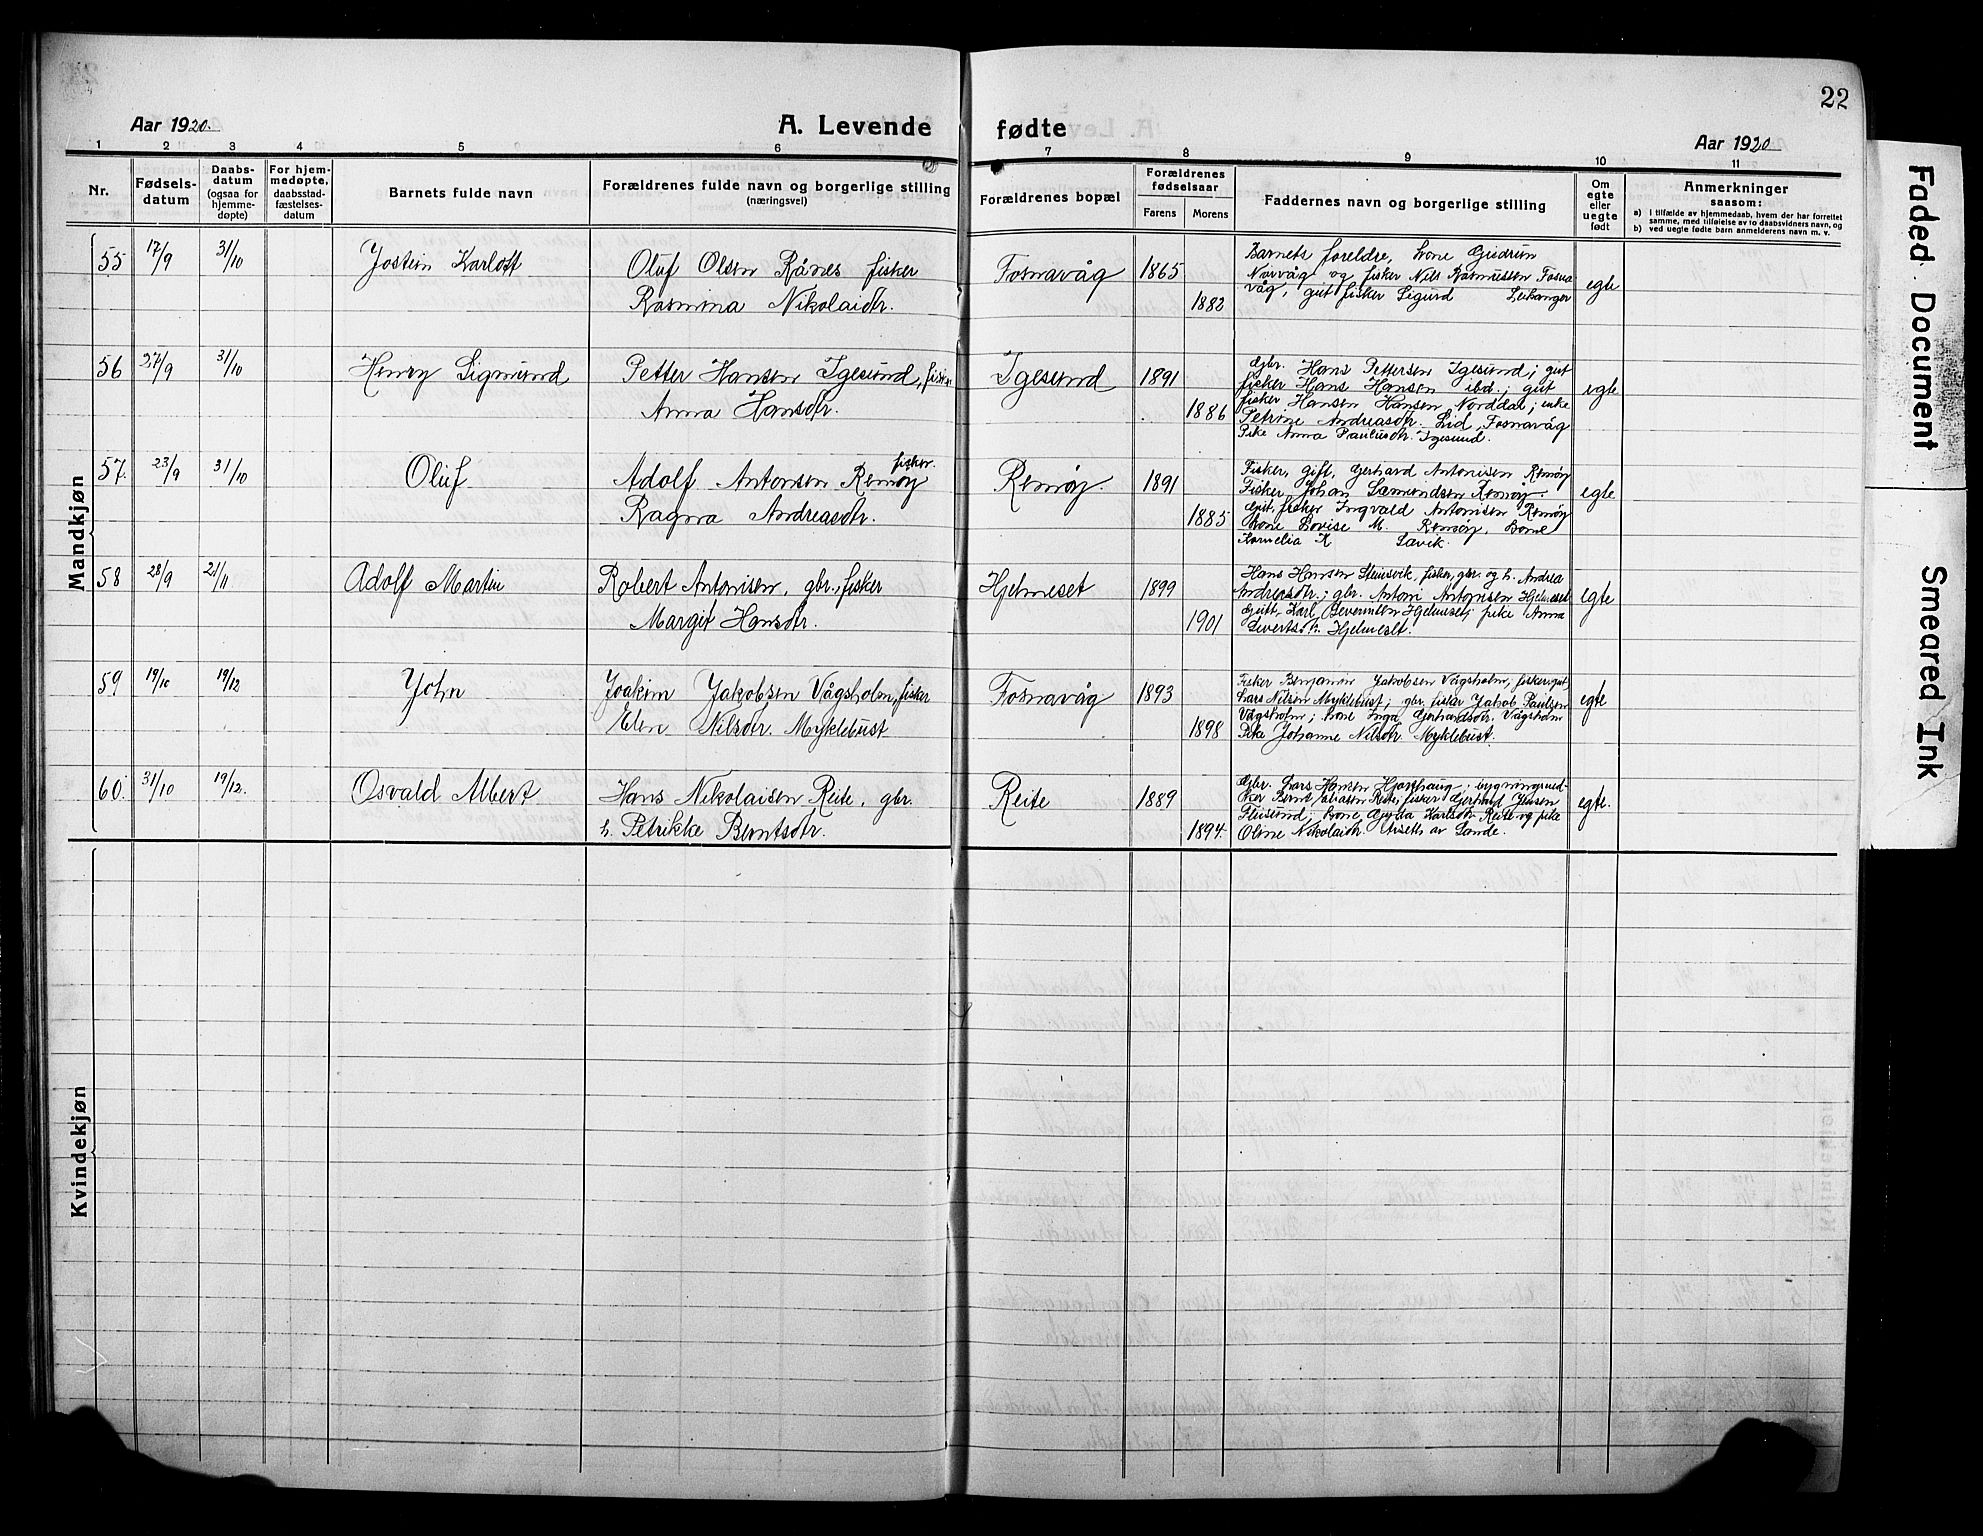 22
Aar 1920.
A. Levende fødte
Aar 1920
1 2 3 4 5 6 7 8 9 10 11
Nr.
Fødsels-
datum
Daabs-
datum
(ogsaa for
hjemme-
døpte)
For hjem-
medøpte,
daabsstad-
fæstelses-
datum
Barnets fulde navn
Forældrenes fulde navn og borgerlige stilling
(næringsvei)
Forældrenes bopæl
Forældrenes
fødselsaar
Farens
Morens
Faddernes navn og borgerlige stilling
Om
egte
eller
uegte
født
Anmerkninger
saasom:
a) i tilfælde av hjemmedaab, hvem der har forrettet
samme, med tilføielse av to daabsvidners navn, og
b) ved uegte fødte barn anmelderens navn m. v.
Mandkjøn
55 17/9 31/10 Jostein Karlott
Oluf Olsen Rånes fisker
Rasmina Nikolaidtr.
Fosnavåg 1865
1882
Barnets foreldre, kone Gudrun
Nørvåg og fisker Nils Rasmussen Fosna
våg, gut fisker Sigurd Leikanger
egte
56 27/9 31/10 Henry Sigmund
Petter Hansen Igesund, fisker
Anna Hansdtr.
Igesund 1891
1886
Gbr. Hans Pettersen Igesund; gut
fisker Hans Hansen ibd.; gut
fisker Hansen Hansen Norddal; enke
Petrine Andreasdtr. Lid, Fosnavåg
Pike Anna Paulusdtr. Igesund.
egte
57. 23/9 31/10 Oluf
fisker.
Adolf Antonsen Remøy
Ragna Andreasdtr.
Remøy. 1891
1885
Fisker, gift, Gerhard Antonisen Remøy
Fisker Johan Samundsen Remøy.
Gut, fisker Ingvald Antonisen Remøy
Kone Lovise M. Remøy, Kone
Kornelia K Sævik.
egte
58 28/9 21/11 Adolf Martin
Robert Antonisen, gbr., fisker
Margit Hansdtr.
Hjelmeset 1899
1901
Hans Hansen Steinsvik, fisker, gbr. og h. Andrea
Andreasdtr.; gbr. Antoni Antonisen Hjelmeset
Gutt, Karl Severinsen Hjelmeset; pike Anna
Sivertsd. Hjelmeslt.
egte
59 19/10 19/12 John
Joakim Jakobsen Vågsholm, fisker
Elen Nilsdtr. Myklebust
Fosnavåg 1893
1898
Fisker Benjamin Jakobsen Vågsholm, fisker, gut,
Lars Nilsen Myklebust; gbr, fisker Jakob Paulsen
Vågsholm; kone Inga Gerhardsdtr. Vågsholm
Pike Johanne Nilsdtr. Myklebust.
egte
60. 31/10 19/12. Osvald Albert
Hans Nikolaisen Reite, gbr.
h. Petrikke Berntsdtr.
Reite 1889
1894.
Gbr. Lars Hansen Hjorthaug; bygningssned-
ker Bernt Reite, fisker Gerhard Jensen
Fleisund; kone Gyda Karlsdtr Reite og pike
Oline Nikolaidtr. Årseth av Sande.
egte.
Kvindekjøn
Faded Document Smeared Ink